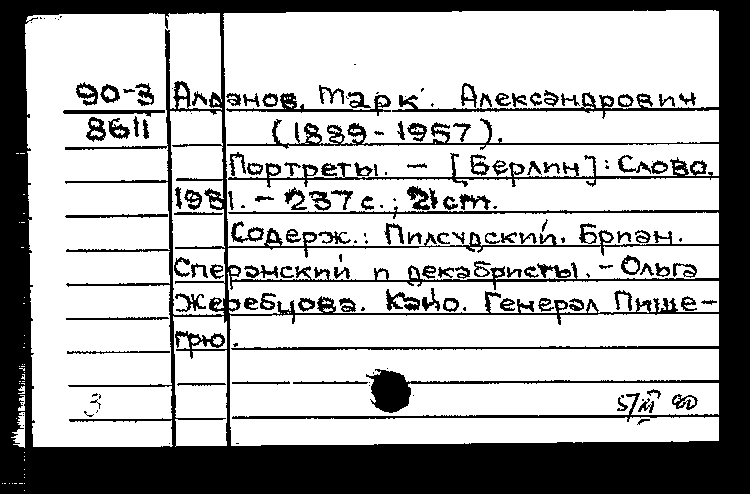 90-3 Алданов, Марк Александрович
8611 (1889-1957).
Портреты. — [Берлин]: Слово,
1931. - 237 с.; 21 cm.
Содерж.: Пилсудский. Бриан.
Сперанский и декабристы. - Ольга
Жеребцова. Кайо. Генерал Пише-
грю.
3
5/III 90